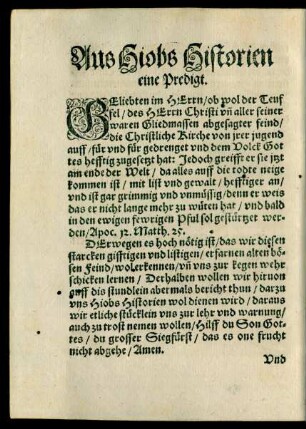 Aus Hiobs Historien
eine Predigt.
GEliebten im HErrn/ob wol der Teuf
fel/des HErrn Christi vñ aller seiner
waren Gliedmassen abgesagter feind/
die Christliche Kirche von jrer jugend
auff/für vnd für gedrenget vnd dem Volck Got
tes hefftig zugesetzt hat: Jedoch greifft er sie jtzt
am ende der Welt/da alles auff die rodte neige
kommen ist/mit list vnd gewalt/hefftiger an/
vnd ist gar grimmig vnd vnmüssig/denn er weis
das er nicht lange mehr zu wüten hat/vnd bald
in den ewigen fewrigen Pful sol gestürtzet wer-
den/Apoc. 12. Matth. 25.
DErwegen es hoch nötig ist/das wir diesen
starcken gifftigen vnd listigen/erfarnen alten bö-
sen Feind/wol erkennen/vñ vns zur kegen wehr
schicken lernen/Derhalben wollen wir hiruon
auff dis stundlein abermals bericht thun/darzu
vns Hiobs Historien wol dienen wird/daraus
wir etliche stücklein vns zur lehr vnd warnung/
auch zu trost nemen wollen/Hilff du Son Got-
tes/du grosser Siegfürst/das es one frucht
nicht abgehe/Amen.
Vnd